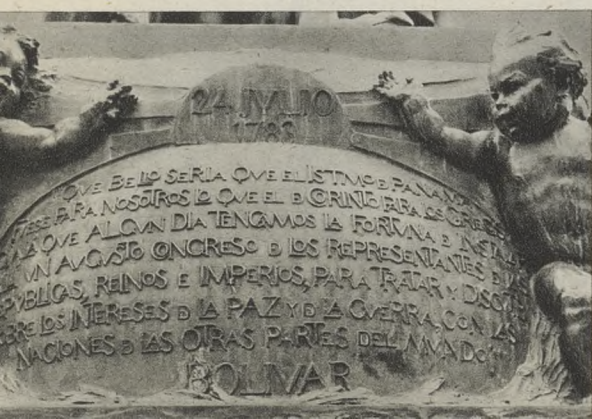 24 JVLIO
1783
QVE BELLO SERIA QVE EL ISTMO D PANAMA
FVESE PARA NOSOTROS LO QVE EL D CORINTO PARA LOS GRIEGOS
QVE ALGVN DIA TENGAMOS LA FORTVNA D
VN AVGVSTO CONGRESO D LOS REPRESENTANTES D
REPVBLICAS, REINOS E IMPERIOS, PARA TRATAR Y
SOBRE LOS INTERESES D LA PAZ Y D LA GVERRA, CON LAS
NACIONES D LAS OTRAS PARTES DEL MVNDO
BOLIVAR